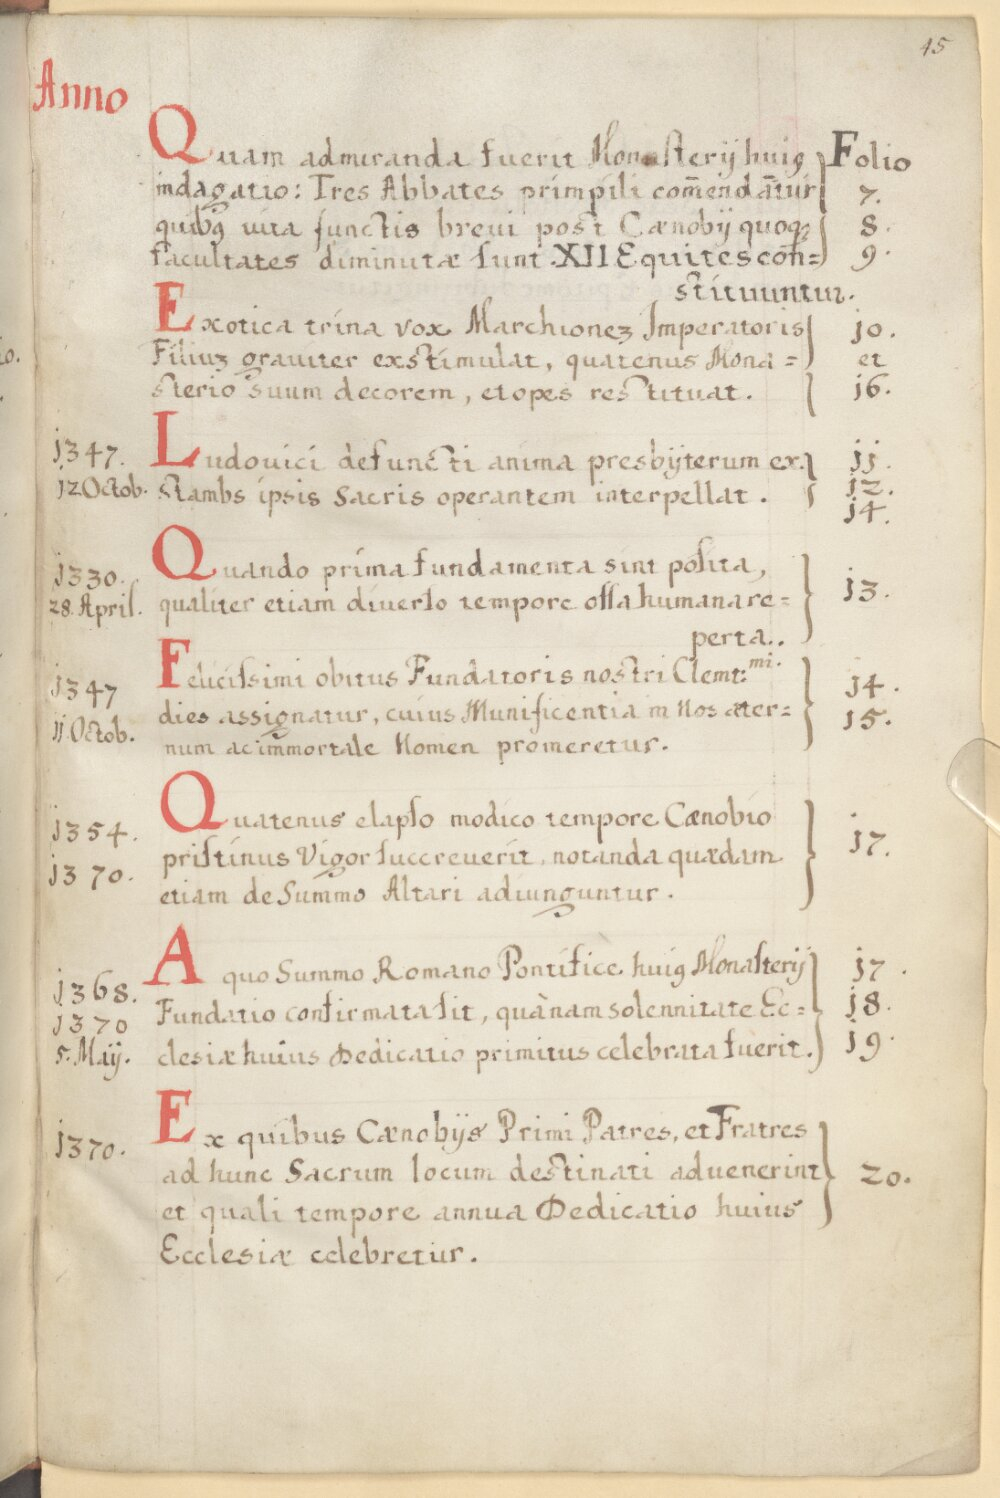 45
Anno
Quam admiranda fuerit Monasterij huiꝰ Folio
indagatio: Tres Abbates primpili com̄endan̄tur 7.
quibꝰ vita functis brevi post Cænobij quoqꝫ 8.
facultates diminutæ sunt. XII Equites con̄= 9.
stituuntur.
Exotica trina vox Marchionez Imperatoris 10.
Filiuz graviter exstimulat, quatenus Mona= et
sterio suum decorem, et opes restituat. 16.
1347. Ludovici defuncti anima presbyterum ex 11.
12 Octob. stambs ipsis Sacris operantem interpellat. 12.
14.
1330. Quando prima fundamenta sint posita,
28. April. qualiter etiam diverso tempore ossa humana re= 13.
perta..
1347 Felicissimi obitus Fundatoris nostri Clemt:mi. 14.
11 Octob. dies assignatur, cuius Munificentia in Nos æter= 15.
num ac immortale Nomen promeretur.
1354. Quatenus elapso modico tempore Cænobio
1370. pristinus Vigor succreverit, notanda quædam 17.
etiam de Summo Altari adiunguntur.
1368. A quo Summo Romano Pontifice huiꝰ Monasterij 17.
1370 Fundatio confirmata sit, quànam solennitate Ec= 18.
5. Maij. clesiæ huius Dedicatio primitus celebrata fuerit. 19.
1370. Ex quibus Cænobijs Primi Patres, et Fratres
ad hunc Sacrum locum destinati advenerint 20.
et quali tempore annua Dedicatio huius
Ecclesiæ celebretur.